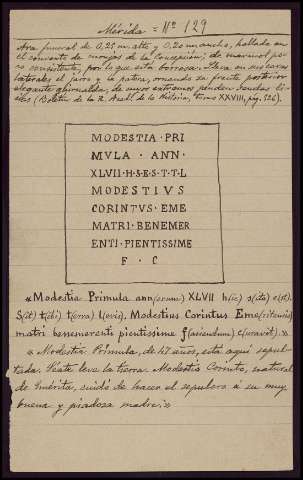 Mérida - Nº 129
Ara funeral de 0,25 m. alta y 0,20 m. ancha, hallada en
el convento de monjas de la Concepción; de marmol po-
co consistente, por lo que está borrosa. Lleva en sus caras
laterales el jarro y la patera, ornando su frente posterior
elegante guirnalda, de cuyos extremos penden sendas
(Boletin de la R. Acad. de la Historia, tomo XXVIII, pag. 526).
MODESTIA · PRI
MVLA · ANN ·
XLVII · H · S · E · S · T · T · L
MODESTIVS
CORINTVS · EME
MATRI · BENEMER
ENTI · PIENTISSIME
F · C
«Modestia Primula ann(orum) XLVII h(ic) s(ita) e(st).
S(it) t(ibi) t(erra) l(evis). Modestius Corintus Eme(ritensis)
matri benemerenti pientissime f(aciendum) c(uravit).»
«Modestia Primula, de 47 años, está aquí sepul-
tada. Séate leve la tierra. Modestio Corinto, natural
de Emérita, cuidó de hacer el sepulcro á su muy
buena y piadosa madre.»